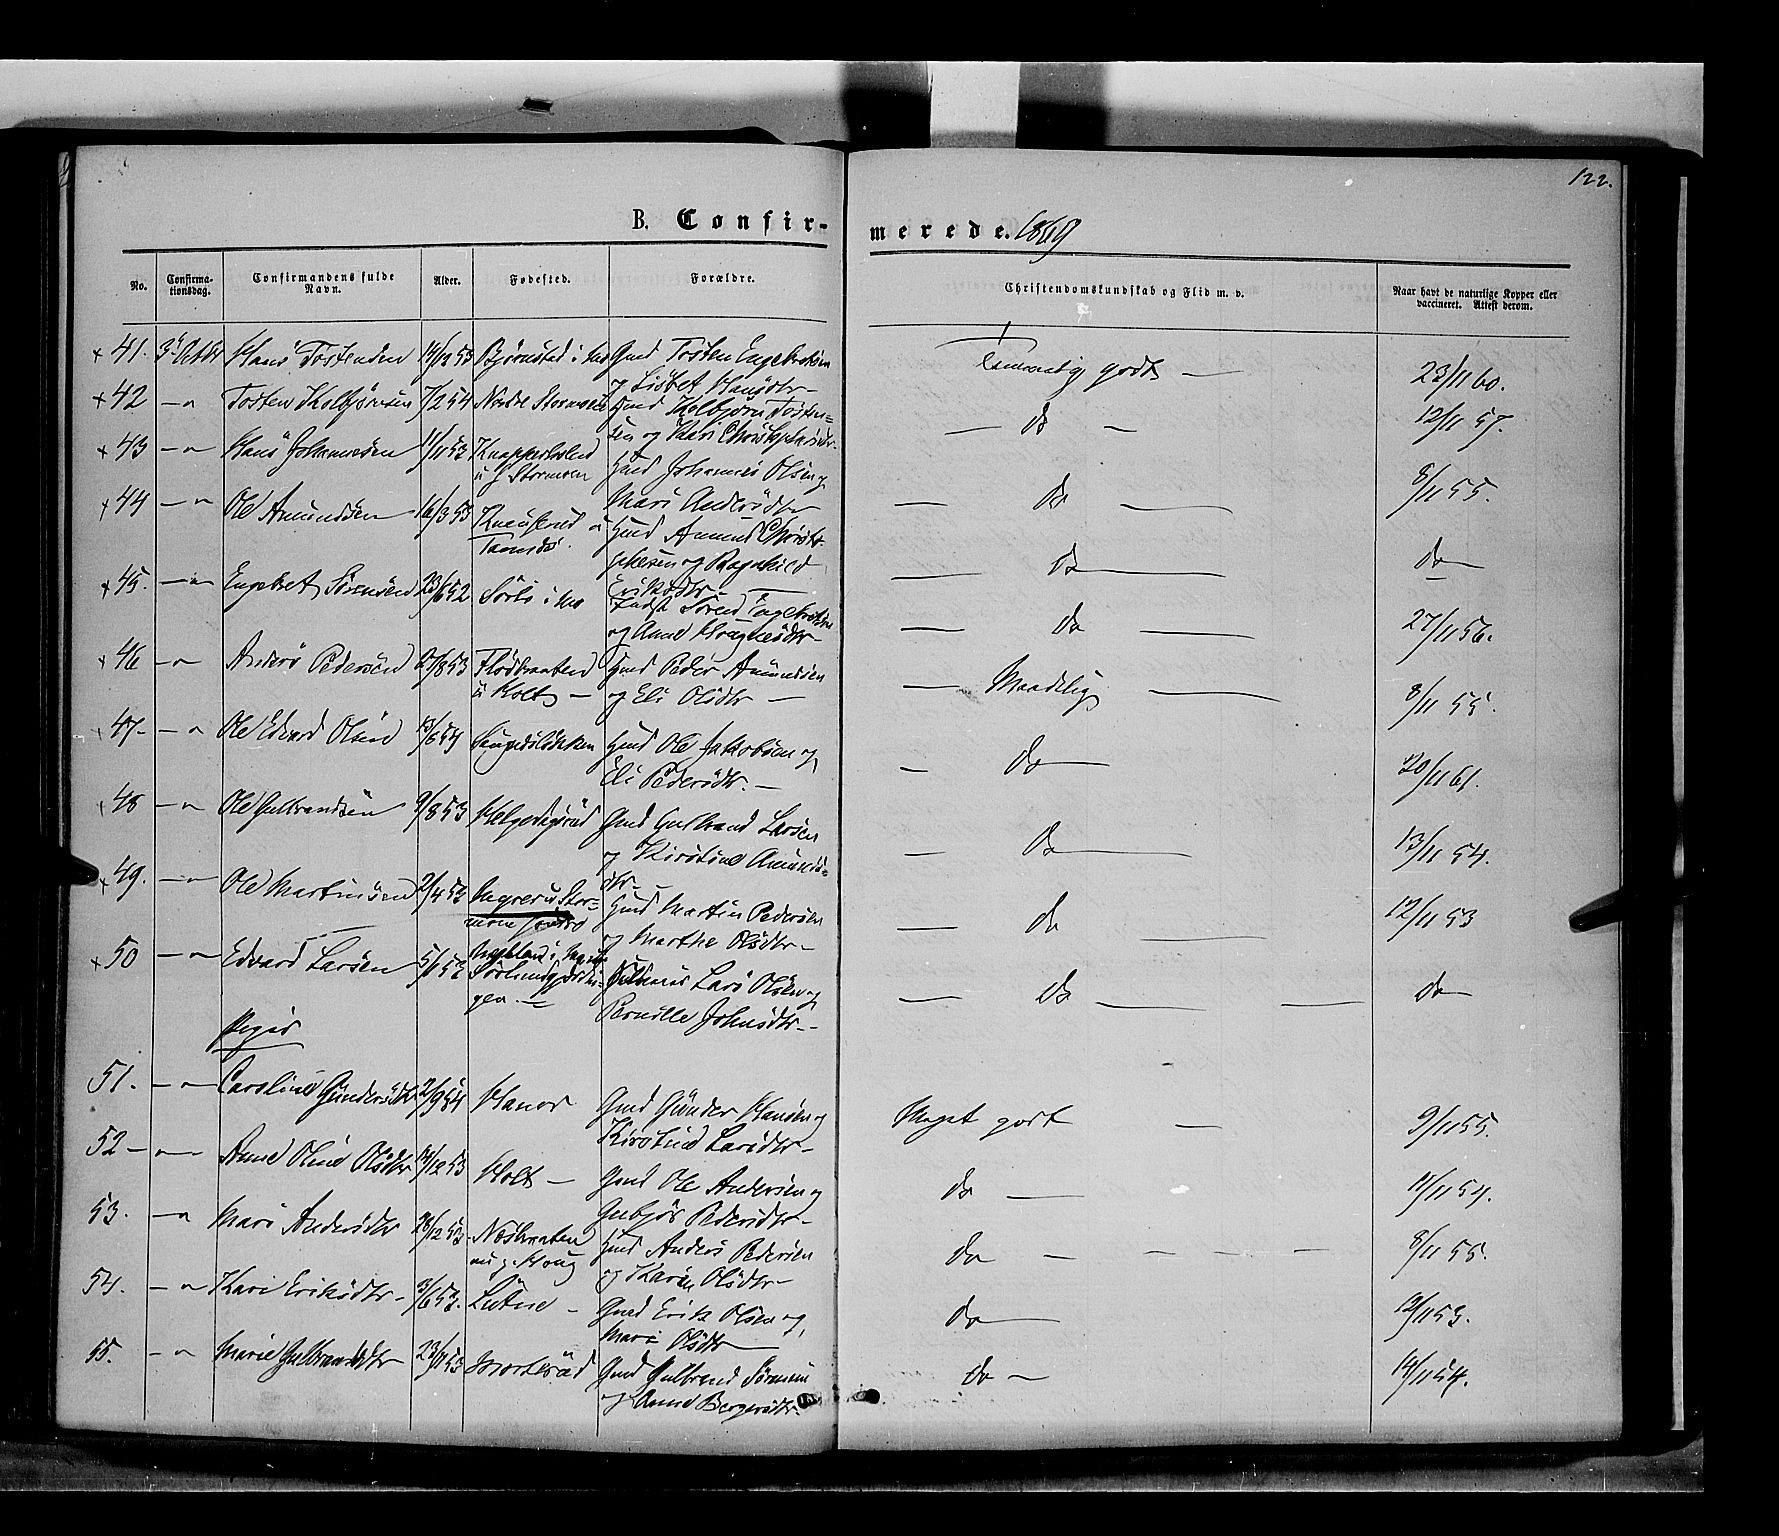 122.
B. Confirmerede. 1869
No.
Confirmationsdag.
Confirmandens fulde Navn.
Alder.
Fødested.
Forældre.
Christendomskundskab og Flid m. v.
Naar havt de naturlige Kopper eller vaccineret. Attest derom.
× 41. 3 Octbr Hans Tostensen 14/12 53 Bjørnstad i Gmd Tosten Engebretsen
og Lisbet Hansdtr - Temmelig godt — 23/11 60.
× 42 — " Tosten Kolbjørnsen 7/2 54 Nordre Stormoen Gmd Kolbjørn Tosten=
sen og Kari Christophersdtr - — Do — 12/11 57.
× 43 — " Hans Johannesen 1/11 53 Knapperholen
u/ Stormoen Hmd Johannes Olsen og
Mari Andersdtr — Do — 8/11 55.
× 44 — " Ole Amundsen 16/3 53
Hmd Amund Christo-
phersen og Ragnhild
Eriksdtr — Do — do
× 45. — " Engebret Sørensen 23/6 52 Sørli i Mo
Søren Engebretsen
og Anne — Do — 27/11 56.
× 46 — " Anders Pedersen 27/8 53 Flødbraaten
u/ Holt — Hmd Peder Amundsen
og Eli Olsdtr — — Maadelig — 8/11 55.
× 47- — " Ole Edvard Olsen 13/6 54 Hmd Ole Jakobsen og
Eli Pedersdtr. — — Do — 20/11 61.
× 48 — " Ole Gulbrandsen 9/8 53 Helgedagsrud Gmd Gulbrand Larsen
og Kirstine Amunds=
dtr — — Do — 13/11 54.
× 49. — " Ole Martinsen 2/4 53 u/ Stor=
moen Hmd Martin Pedersen
og Marthe Olsdtr — — do — 12/11 53
× 50 — " Edvard Larsen 5/1 53
Lars Olsen og
Pernille Johnsdtr — — Do — do
Piger
51. — " Caroline Gundersdtr 2/9 54 Haner Gmd Gunder Hansen og
Kirstine Larsdtr — Meget godt — 9/11 55.
52 — " Anne Oline Olsdtr 14/12 53 Holt — Gmd Ole Andersen og
Gubjør Pedersdtr — do — 11/11 54.
53. — " Mari Andersdtr 28/12 53 Næsbraaten
Hmd Anders Pedersen
og Karen Olsdtr — do — 8/11 55.
54. — " Kari Eriksdtr - 3/6 53. Lutne — Gmd Erik Olsen og
Mari Olsdtr — do — 12/11 53.
55. — " Marie Gulbrandsdtr 23/11 53 Morterud Gmd Gulbrand Sørensen
og Anne Bergersdtr — do — 14/11 54.